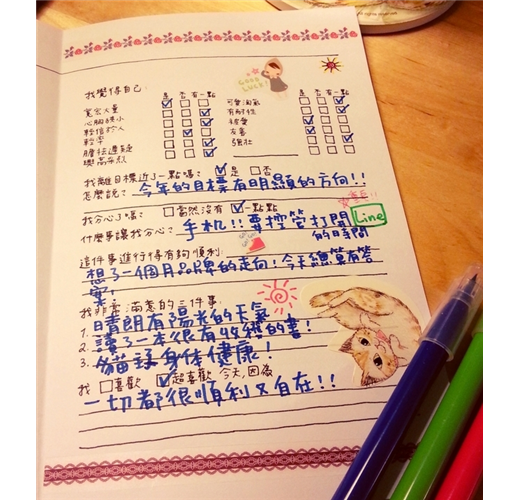 GOOD LUCK!
我覺得自己:
是 否 有一點
是 否 有一點
寬宏大量
心胸狹小
輕信於人
可愛淘氣
有耐性
友善
我離目標近了一點嗎? 是 否
怎麼說? 今年的目標有明顯的方向!!
我分心了嗎? 當然沒有 一點點
什麼事讓我分心? 手機!! 要控管打開 Line
的時間
這件事進行得有夠順利:
想了一個月品牌的走向!今天總算有答
案!
我非常滿意的三件事!
1. 晴朗有陽光的天氣
2. 讀了一本很有收穫的書!
3. 貓孩身体健康!
我 喜歡 超喜歡 今天,因為
一切都很順利又自在!!